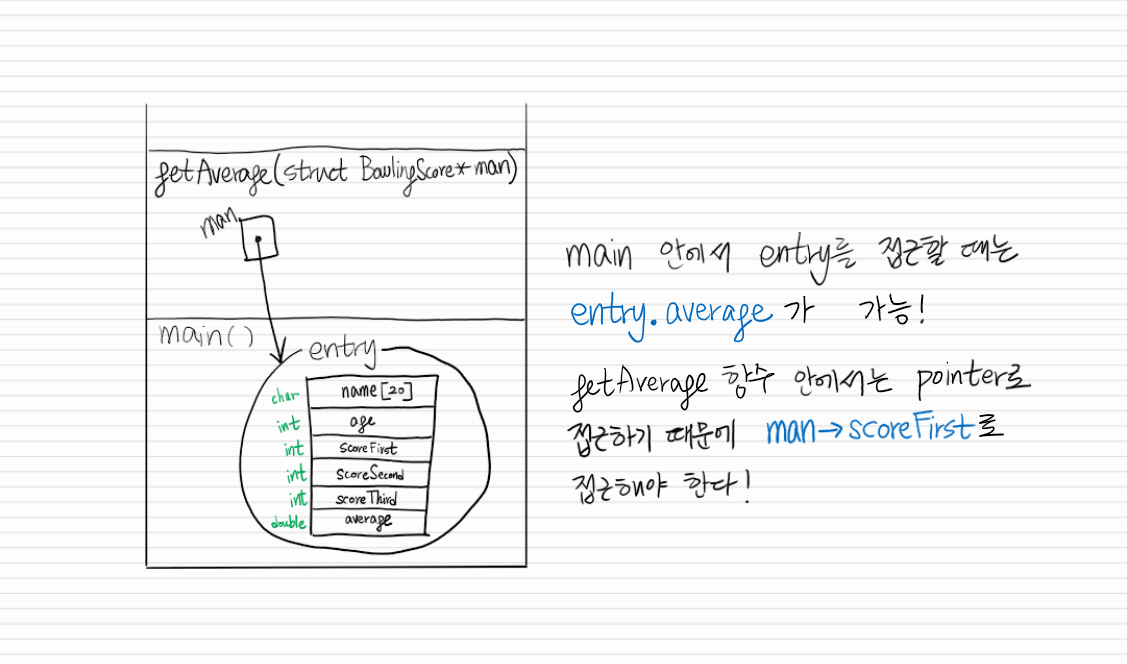 getAverage(struct BowlingScore* man)
man
main()
entry
char name[20]
int age
int scoreFirst
int scoreSecond
int scoreThird
double average
main 안에서 entry를 접근할 때는
entry.average 가 가능!
getAverage 함수 안에서는 pointer로
접근하기 때문에 man→scoreFirst로
접근해야 한다!